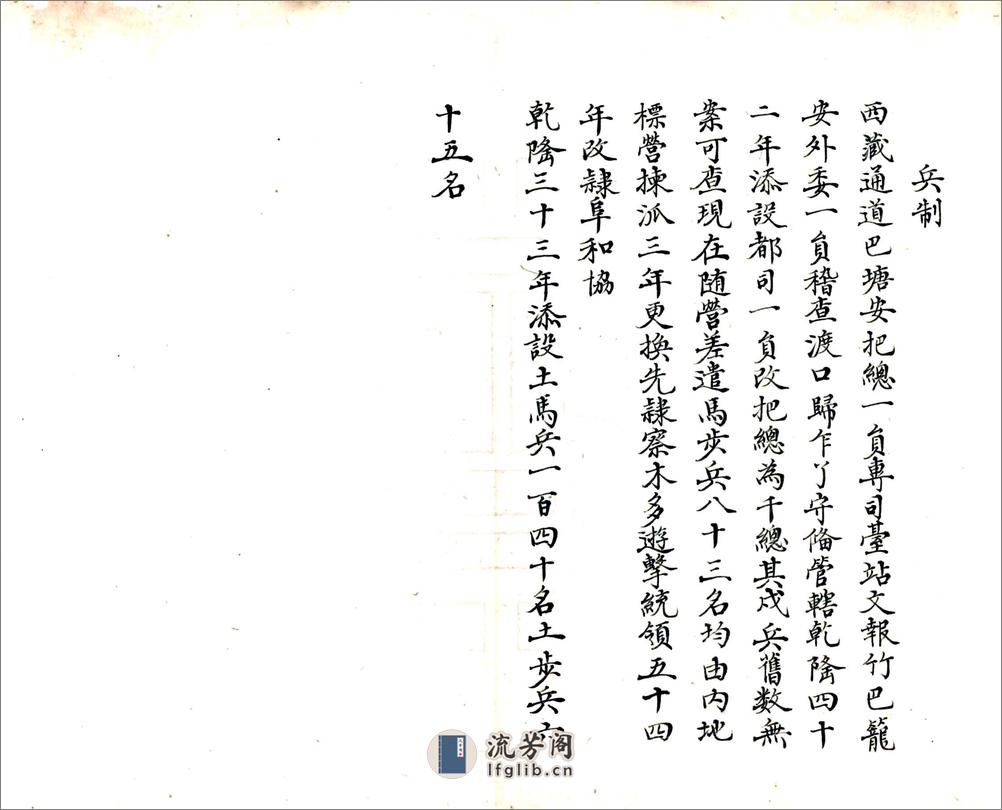 兵制
西藏通道巴塘安把總一員專司臺站文報竹巴籠
安外委一員稽查渡口歸乍丫守偹管轄乾隆四十
二年添設都司一員改把總為千總其戍兵舊数無
案可查現在随營差遣馬步兵八十三名均由内地
標營揀派三年更換先隸察木多遊擊統領五十四
年改隸阜和協
乾隆三十三年添設土馬兵一百四十名土步兵六
十五名
流芳阁
lfglib.cn